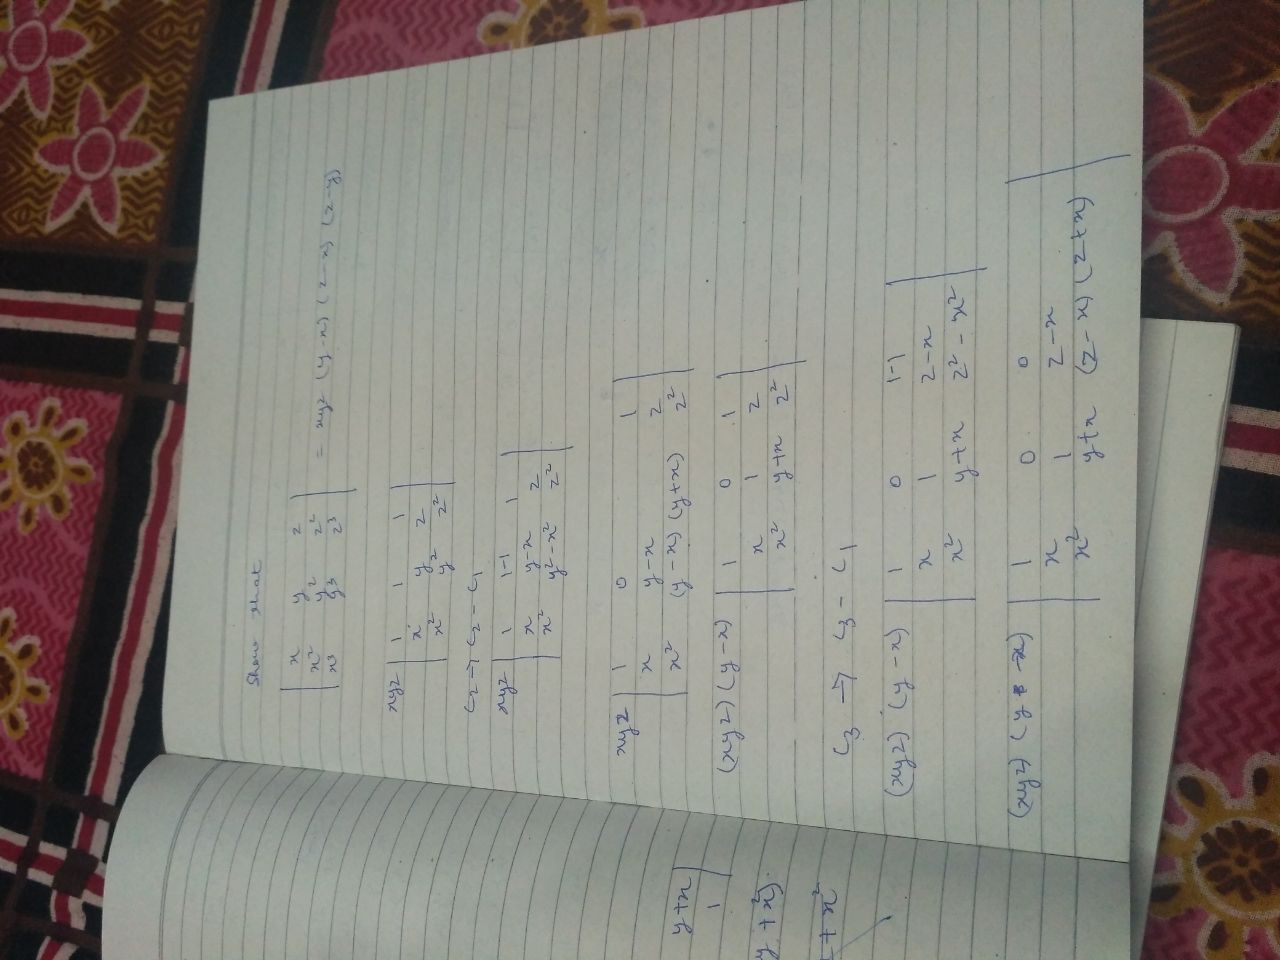 Show that
| x y z |
| x² y² z² | = xyz (y-x) (z-x) (z-y)
| x³ y³ z³ |
xyz | 1 1 1 |
| x y z |
| x² y² z² |
C₂ → C₂ - C₁
xyz | 1 1-1 1 |
| x y-x z |
| x² y²-x² z² |
xyz | 1 0 1 |
| x y-x z |
| x² (y-x)(y+x) z² |
(xyz) (y-x) | 1 0 1 |
| x 1 z |
| x² y+x z² |
C₃ → C₃ - C₁
(xyz) (y-x) | 1 0 1-1 |
| x 1 z-x |
| x² y+x z²-x² |
(xyz) (y-x) | 1 0 0 |
| x 1 z-x |
| x² y+x (z-x)(z+x) |
y+x
1
y + x²)
+ x²